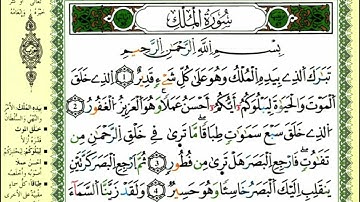 سُورَةُ الْمُلْكِ
بِسْمِ اللَّهِ الرَّحْمَٰنِ الرَّحِيمِ
تَبَارَكَ الَّذِي بِيَدِهِ الْمُلْكُ وَهُوَ عَلَىٰ كُلِّ شَيْءٍ قَدِيرٌ ١ الَّذِي خَلَقَ
الْمَوْتَ وَالْحَيَاةَ لِيَبْلُوَكُمْ أَيُّكُمْ أَحْسَنُ عَمَلًا وَهُوَ الْعَزِيزُ الْغَفُورُ ٢
الَّذِي خَلَقَ سَبْعَ سَمَاوَاتٍ طِبَاقًا مَّا تَرَىٰ فِي خَلْقِ الرَّحْمَٰنِ مِن
تَفَاوُتٍ فَارْجِعِ الْبَصَرَ هَلْ تَرَىٰ مِن فُطُورٍ ٣ ثُمَّ ارْجِعِ الْبَصَرَ كَرَّتَيْنِ
يَنقَلِبْ إِلَيْكَ الْبَصَرُ خَاسِئًا وَهُوَ حَسِيرٌ ٤ وَلَقَدْ زَيَّنَّا السَّمَاءَ
بِيَدِهِ الْمُلْكُ
خَلَقَ الْمَوْتَ
لِيَبْلُوَكُمْ
أَحْسَنُ عَمَلًا
طِبَاقًا